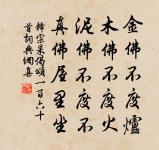 金佛不度爐
木佛不度火
泥佛不度水
真佛屋里坐
釋宗杲偈頌一百六十
首詞典網集